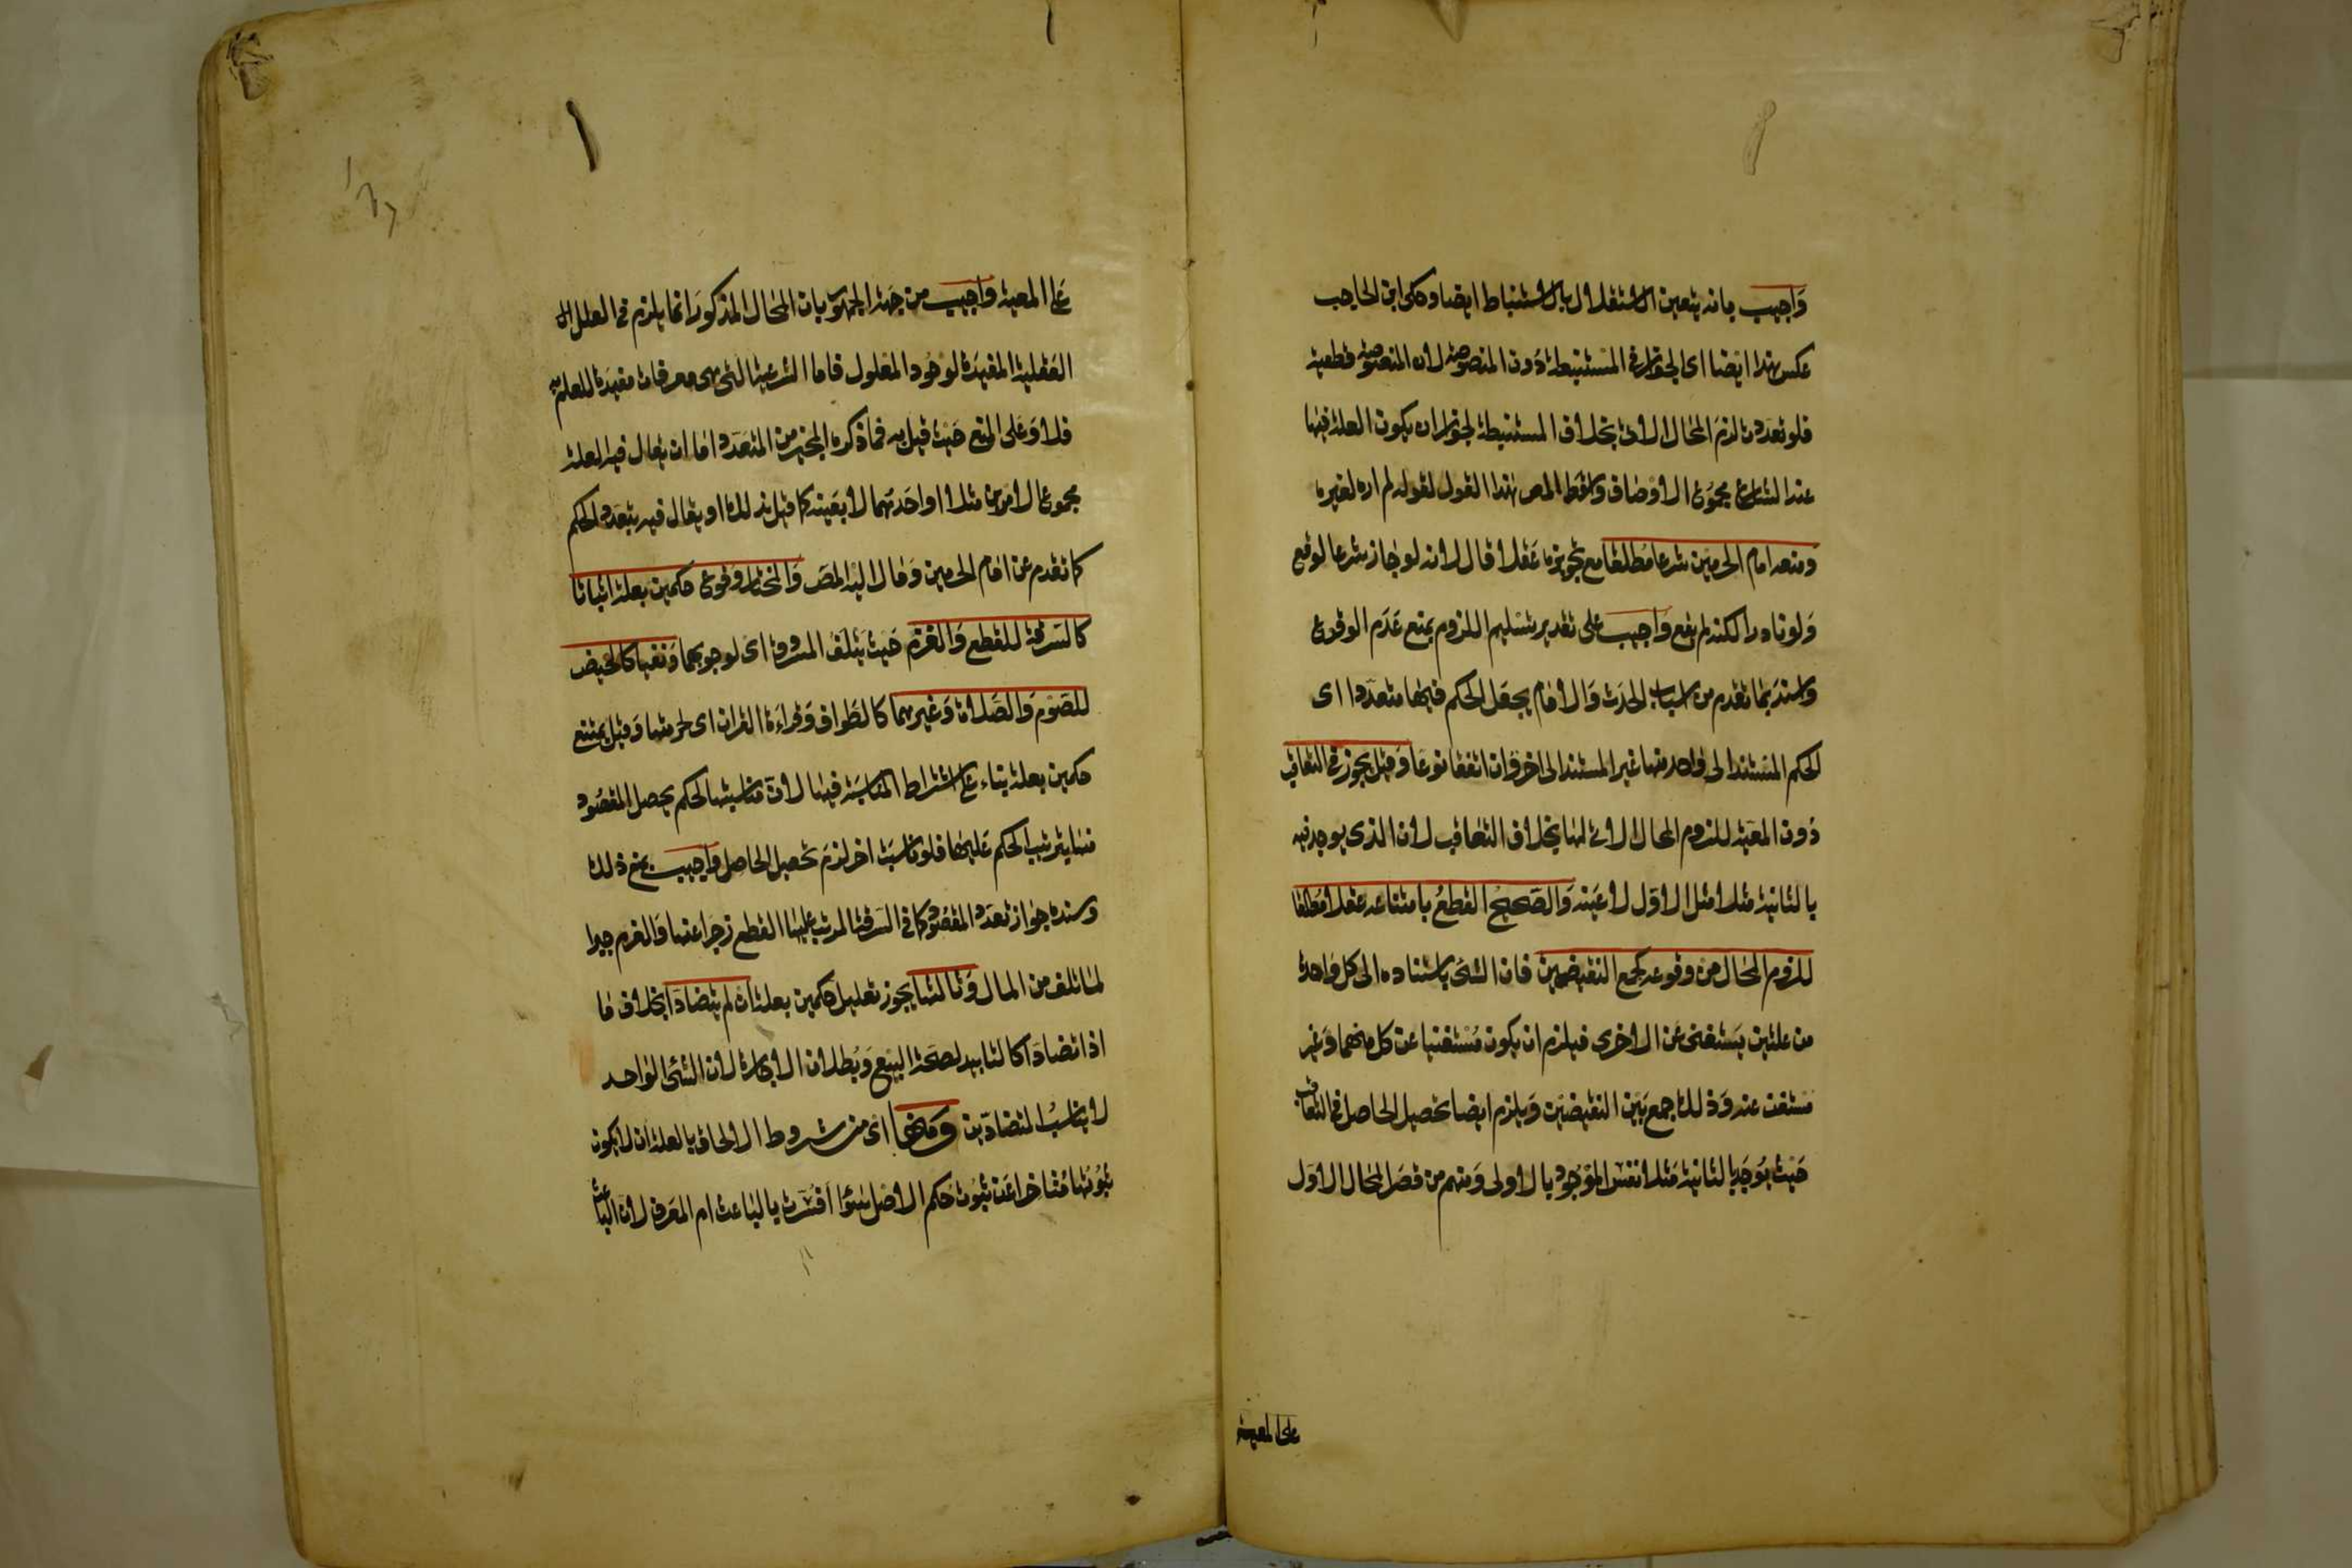 وَاجيب بانه يتعين الاستقلال بالاستنباط ايضا وحكى ابن الحاجب
عكس هذا ايضا اى الجواز فى المستنبطة دون المنصوصة لان المنصوصة قطعية
فلو تعددت لزم المحال الاتى بخلاف المستنبطة لجواز ان يكون العلة فيها
عند الشارع مجموع الاوصاف واسقط المص هذا القول لقوله لم اره لغيره
ومنعه امام الحرمين شرعا مطلقا مع تجويزه عقلا قال لانه لو جاز شرعا لوقع
ولو نادرا لكنه لم يقع واجيب على تقدير تسليم اللزوم بمنع عدم الوقوع
واسند بما تقدم من اسباب الحدث والامام يجعل الحكم فيها متعددا اى
الحكم المستند الى واحد منها غير المستند الى اخر وان اتفقا نوعا وقيل يجوز فى التعاقب
دون المعية للزوم المحال الاتى لها بخلاف التعاقب لان الذى يوجد فيه
بالثانية مثلا مثل الاول لا عينه والصحيح القطع بامتناعه عقلا مطلقا
للزوم المحال من وقوعه كجمع النقيضين فان الشئ باستناده الى كل واحدة
من علتين يستغنى عن الاخرى فيلزم ان يكون مستغنيا عن كل منهما وغير
مستغن عنه وذلك جمع بين النقيضين ويلزم ايضا تحصيل الحاصل فى التعاقب
حيث يوجد بالثانية مثلا نفس الموجود بالاولى ومنهم من قصر المحال الاول
على المعية
على المعية واجيب من جهة الجمهور بان المحال المذكور انما يلزم فى العلل
العقلية المفيدة لوجود المعلول فاما الشرعية التى هى معرفات مفيدة للعلم به
فلا وعلى المنع حيث قيل به فما ذكره المجيز من المتعدد اما ان يقال فيه العلة
مجموع الامرين مثلا او احدهما لا بعينه كما قيل بذلك او يقال فيه بتعدد الحكم
كما تقدم عن امام الحرمين ومال اليه المص والمختار وقوع حكمين بعلة اثباتا
كالسرقة للقطع والغرم حيث يتلف المسروق اى لوجوبهما ونفيا كالحيض
للصوم والصلاة وغيرهما كالطواف وقراءة القران اى لحرمتها وقيل يمتنع
حكمين بعلة بناء على اشتراط المناسبة فيها لان مناسبتها لحكم يحصل المقصود
منها بترتيب الحكم عليها فلو ناسبت اخر لزم تحصيل الحاصل واجيب بمنع ذلك
وسنده جواز تعدد المقصود كما فى السرقة المرتب عليها القطع زجرا عنها والغرم جبرا
لما تلف من المال وثالثها يجوز تعليل حكمين بعلة ان لم يتضادا بخلاف ما
اذا تضادا كالتابيد لصحة البيع وبطلان الاجارة لان الشئ الواحد
لا يناسب المتضادين ومنها اى من شروط الالحاق بالعلة ان لا يكون
ثبوتها متاخرا عن ثبوت حكم الاصل سواء افسرت بالباعث ام المعرف لان الباعث